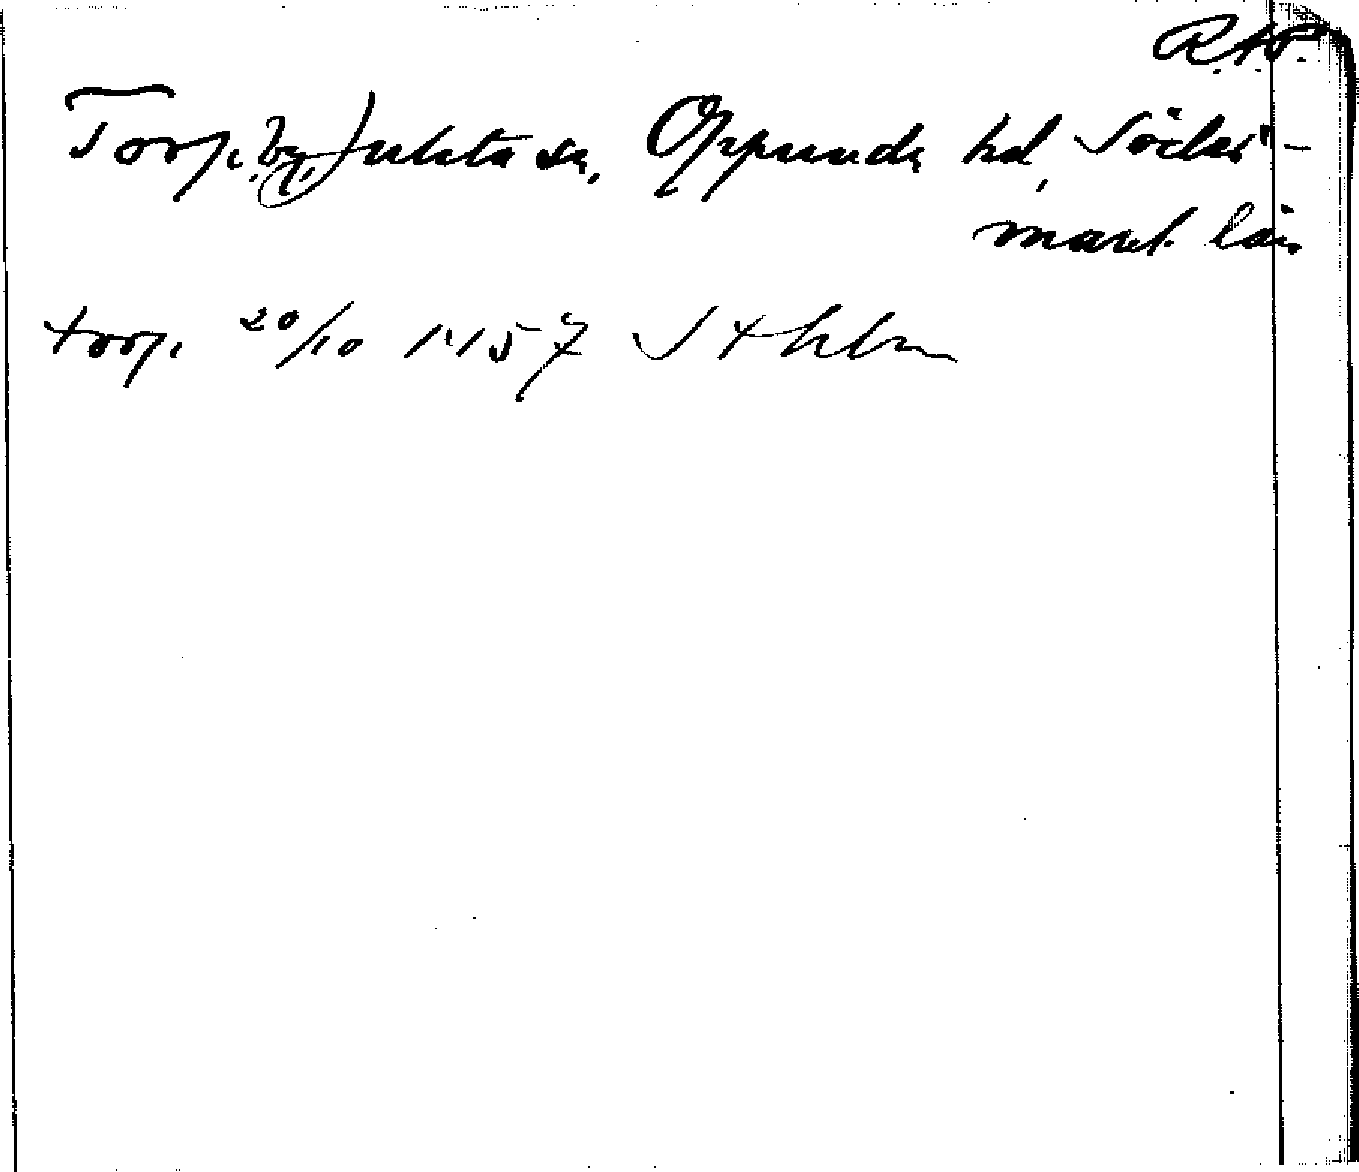 R.A.P.
Torp, by, Julita sn, Oppunda hd, Söder-
manl. län
torp. 20/10 1457 Sthlm